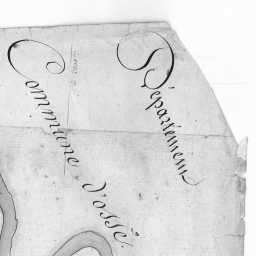 Département
Commune d'ossé.